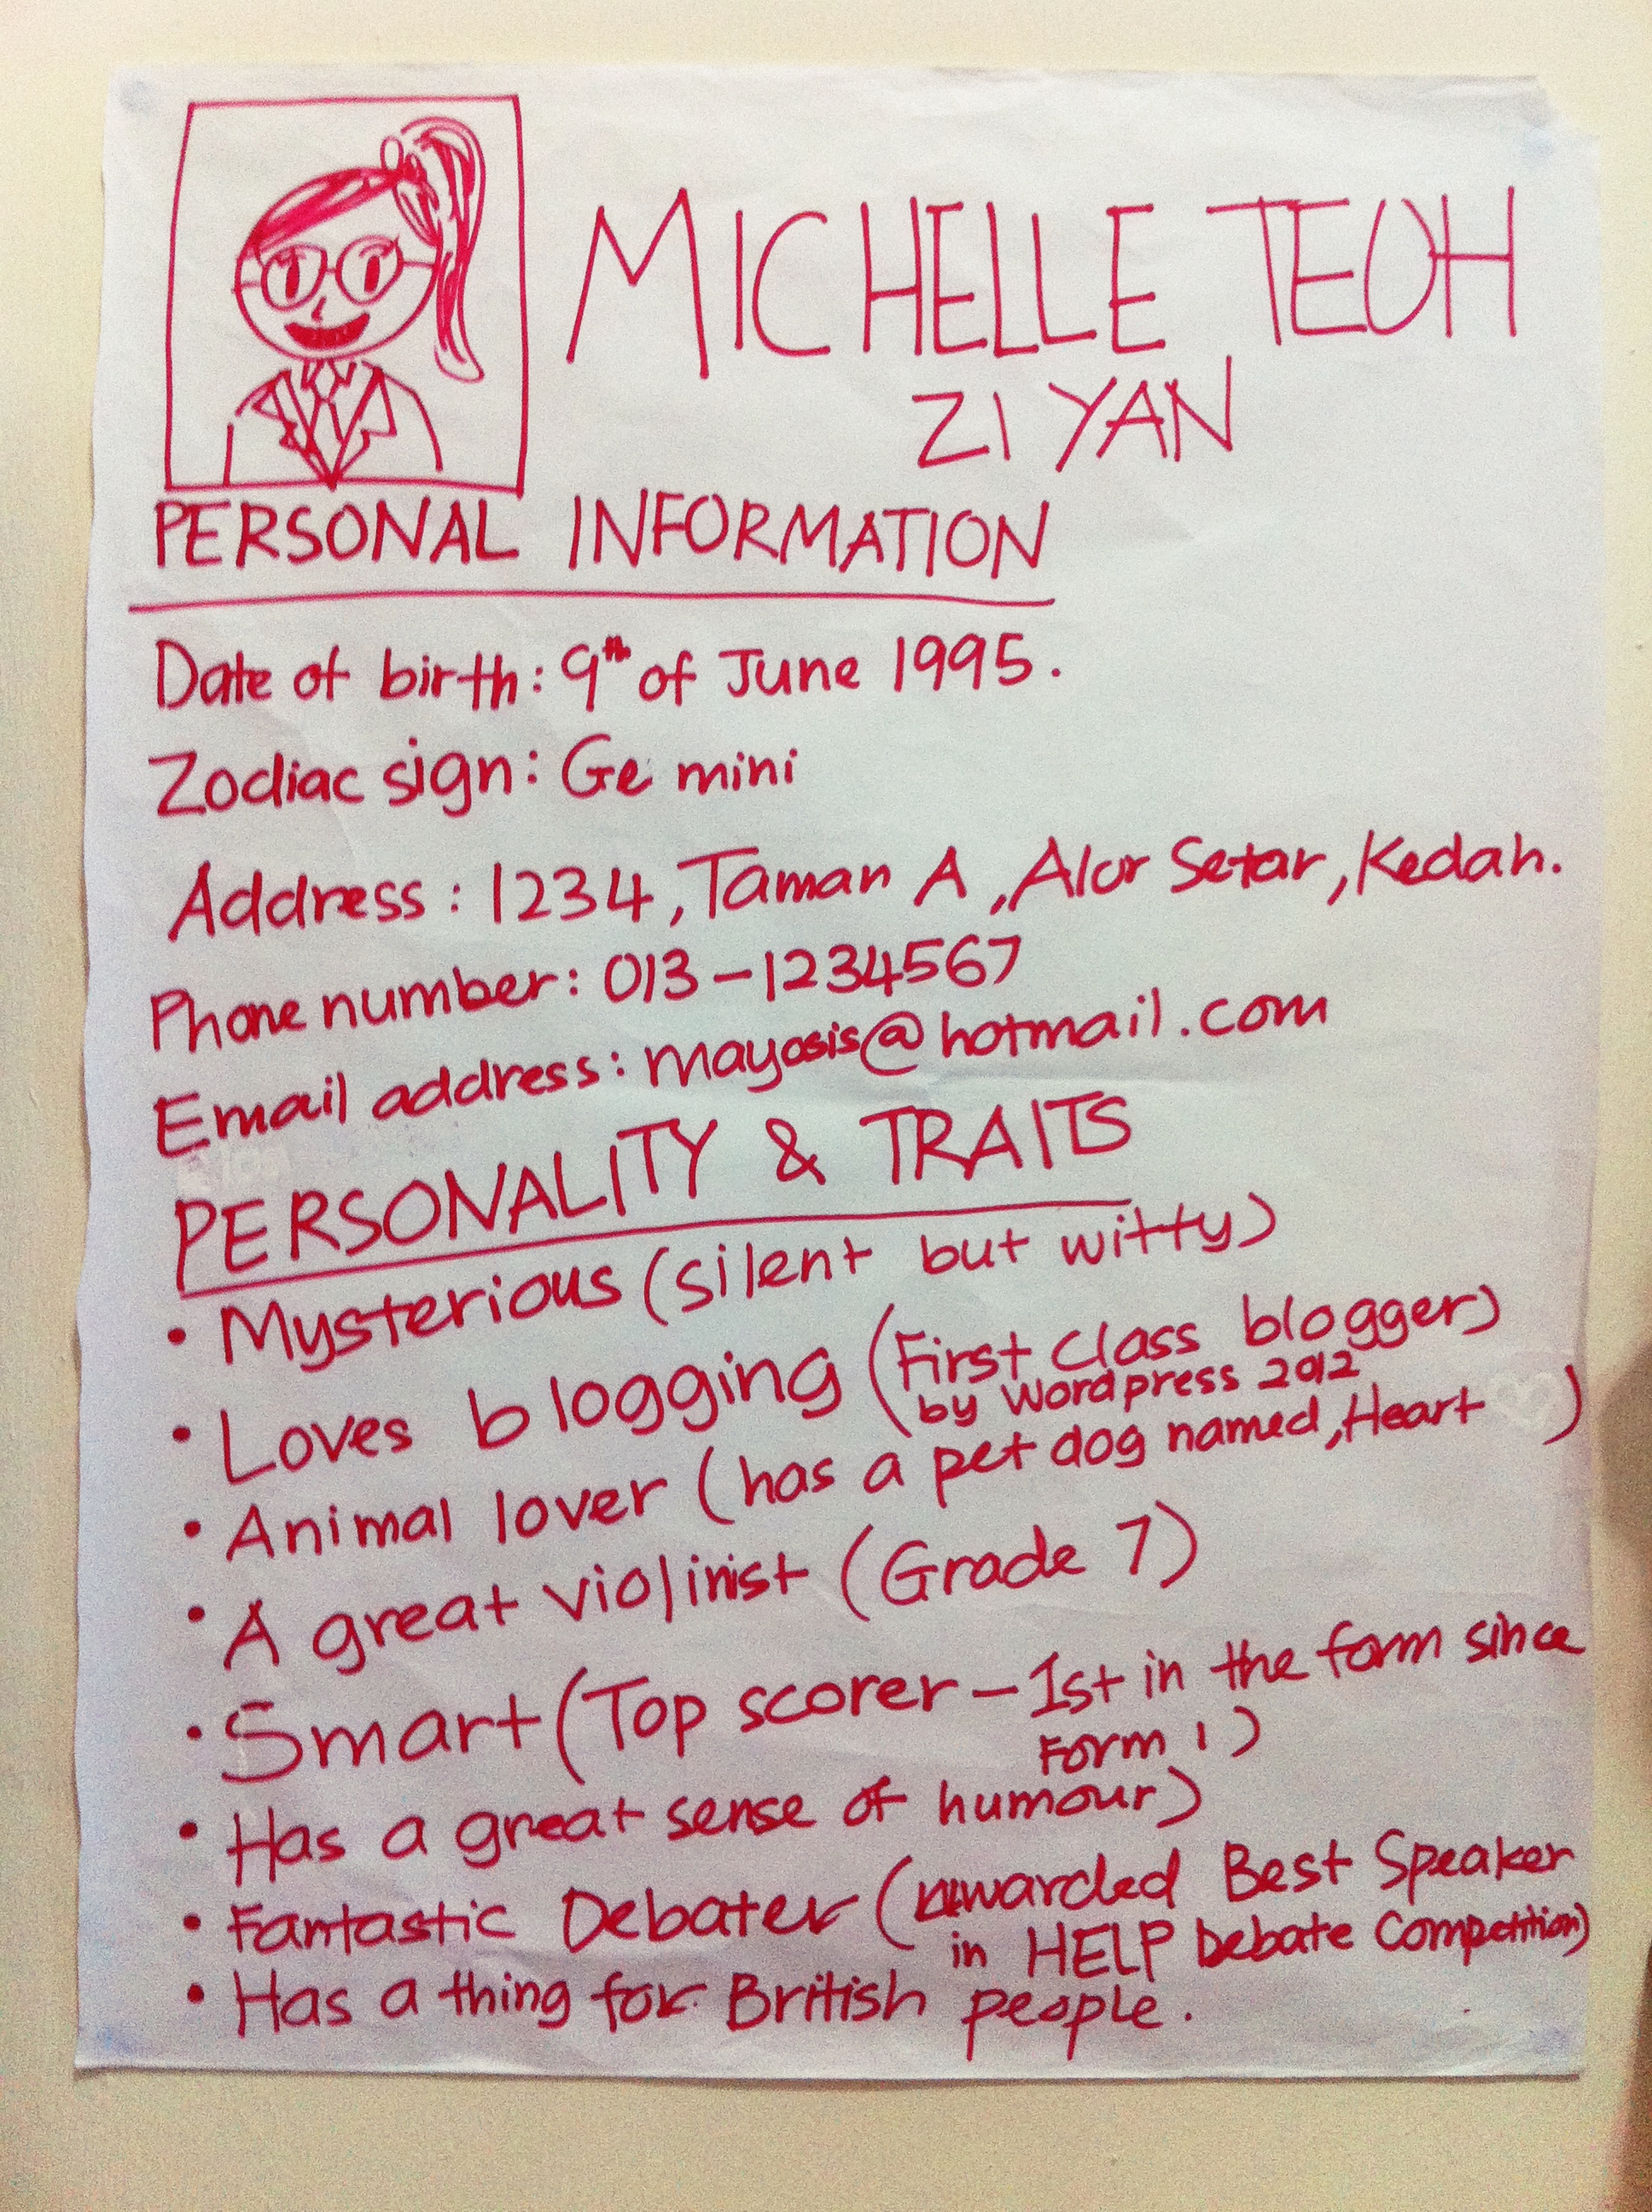 MICHELLE TEOH
ZI YAN
PERSONAL INFORMATION
Date of birth: 9th of June 1995.
Zodiac sign: Gemini
Address: 1234, Taman A, Alor Setar, Kedah.
Phone number: 013-1234567
Email address: mayosis@hotmail.com
PERSONALITY & TRAITS
• Mysterious (silent but witty)
• Loves blogging (First class blogger)
by Wordpress 2012
• Animal lover (has a pet dog named, Heart )
• A great violinist (Grade 7)
• Smart (Top scorer - 1st in the form since
Form 1)
• Has a great sense of humour)
• Fantastic Debater (Awarded Best Speaker
in HELP Debate Competition)
• Has a thing for British people.